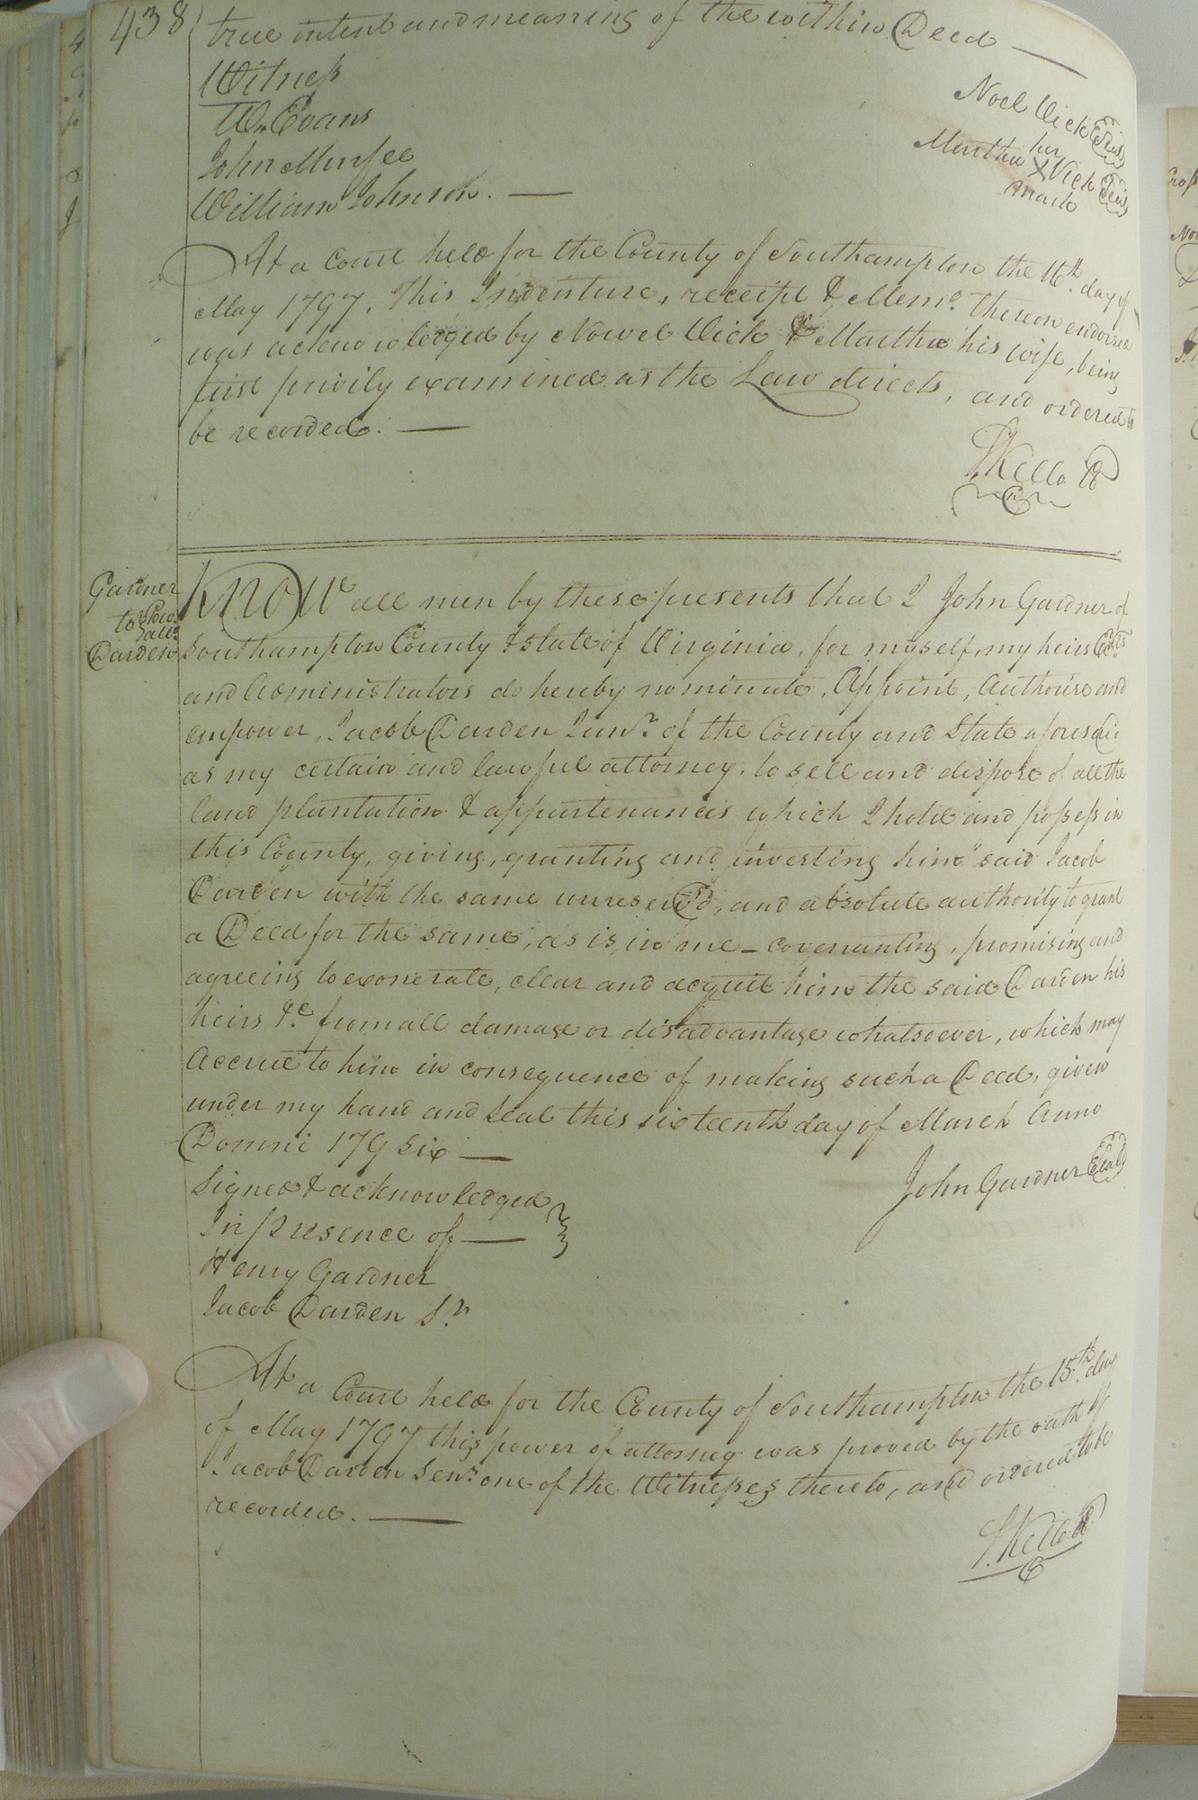 438
true intent and meaning of the within Deed —
Witness
Wm Evans
John Murfee
William Johnson. —
Noel Vick Seal
her
Martha X Vick Seal
mark
At a Court held for the County of Southampton the 16th. day of
May 1797, This Indenture, receipt & Memo. thereon endorsed
was acknowledged by Nowel Vick & Martha his wife, being
first privily examined as the Law directs, and ordered to
be recorded. —
S. Kello
Gardner
to Pow.
Darden
Know all men by these presents that I John Gardner of
Southampton County & state of Virginia, for myself, my heirs Exrs
and Administrators do hereby nominate, Appoint, Authorise and
empower, Jacob Darden Junr. of the County and State aforesaid
as my certain and lawful attorney, to sell and dispose of all the
land plantation & appurtenances which I hold and possess in
this County, giving, granting and investing him said Jacob
Darden with the same unreserv'd, and absolute authority to grant
a Deed for the same, as is in me - covenanting, promising and
agreeing to exonerate, clear and acquit him the said Darden his
heirs &c. from all damage or disadvantage whatsoever, which may
Accrue to him in consequence of making such a Deed, given
under my hand and seal this sixteenth day of March Anno
Domini 179 six —
John Gardner Seal
Signed & acknowledged
In presence of —
Henry Gardner
Jacob Darden Sr.
At a Court held for the County of Southampton the 15th. day
of May 1797 this power of attorney was proved by the oath of
Jacob Darden Senr. one of the Witnesses thereto, and ordered to be
recorded. —
S. Kello